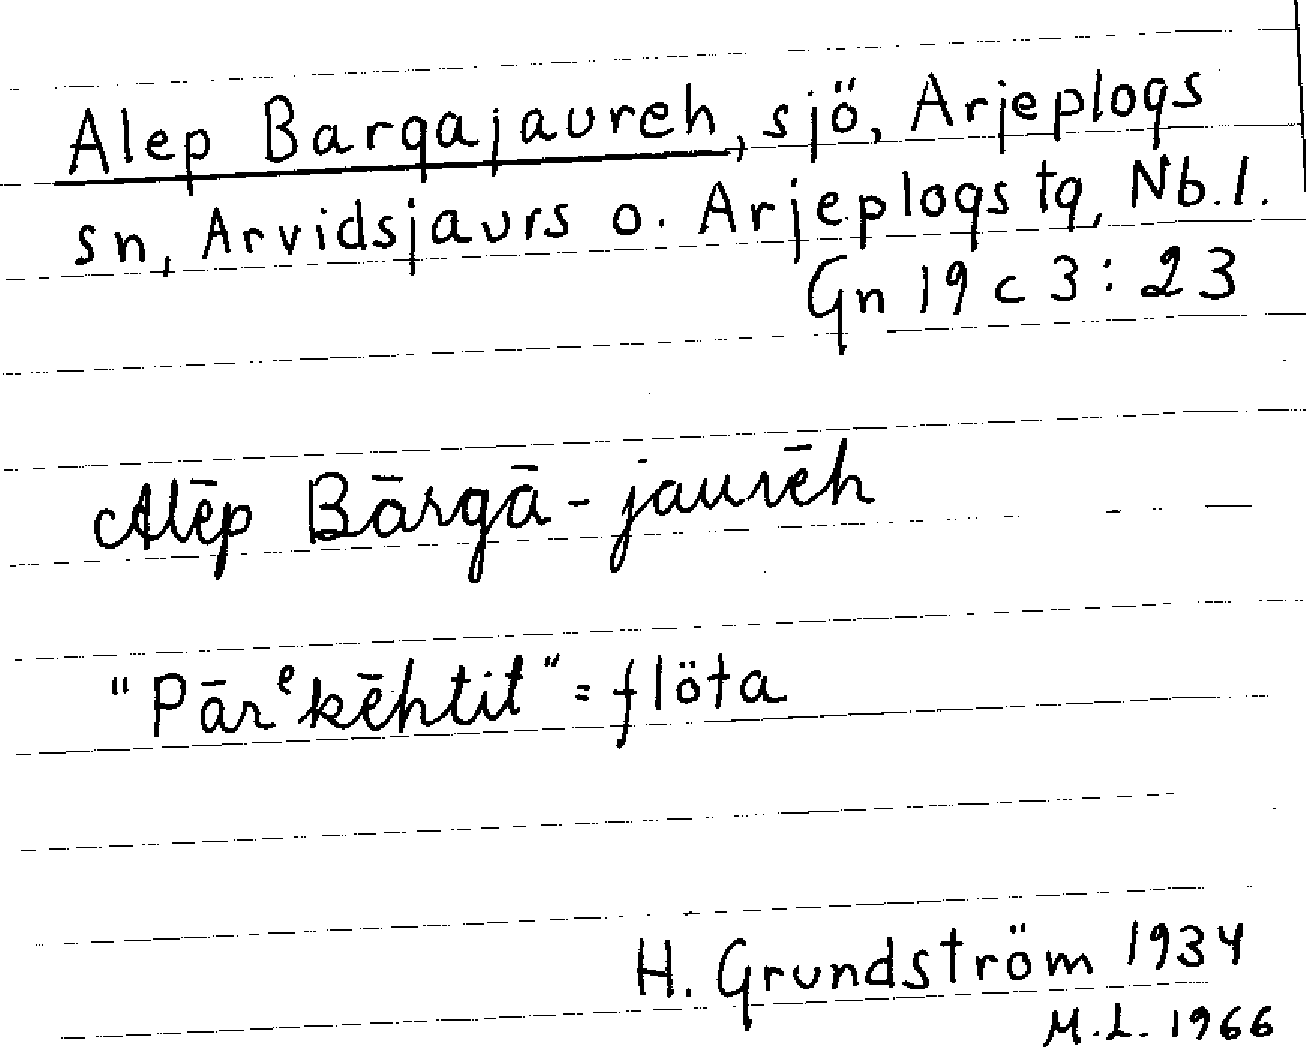 Alep Bargajaureh, sjö, Arjeplogs
sn, Arvidsjaurs o. Arjeplogs tg, Nb.l.
Gn 19 c 3:23
Alēp Bārgā-jaurēh
"Pārᵉkēhtit" = flöta
H. Grundström 1934
M.L. 1966